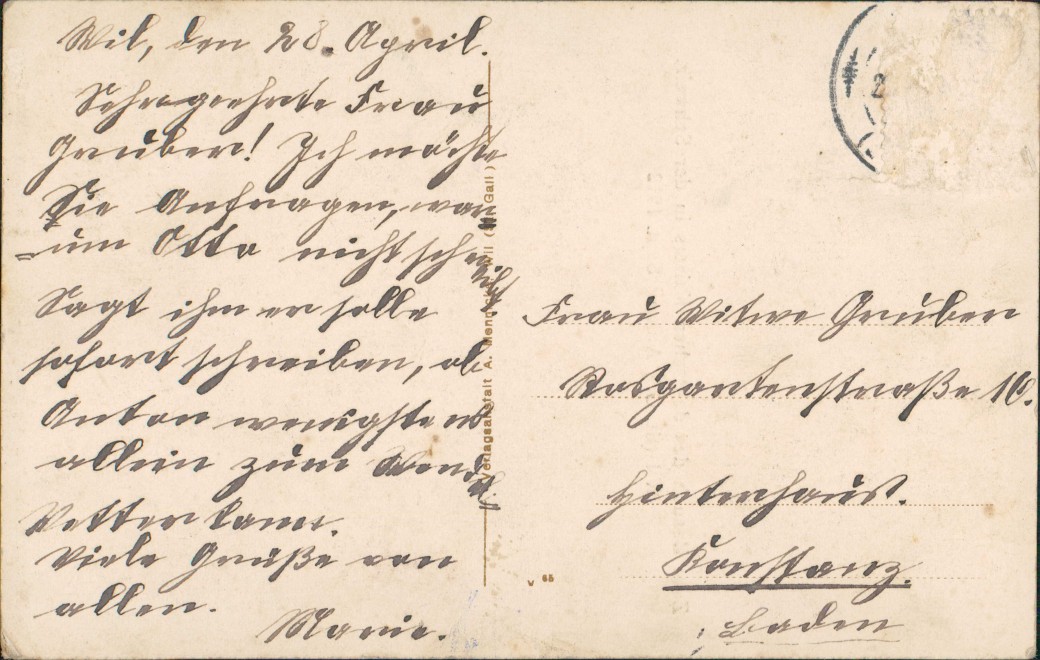 Wil, den 28. April.
Sehrgeehrte Frau
Gruber! Ich möchte
Sie Anfragen, war-
um Otto nicht schreibt
Sagt ihm er solle
sofort schreiben, ob
Anton wenigstens
allein zum
Vetter kann.
Viele Grüße von
allen.
Marie.
Verlagsanstalt A. Wil (St. Gall.)
Frau Witwe Gruber
Rosgartenstraße 16.
Hinterhaus.
Konstanz.
Baden
V 65